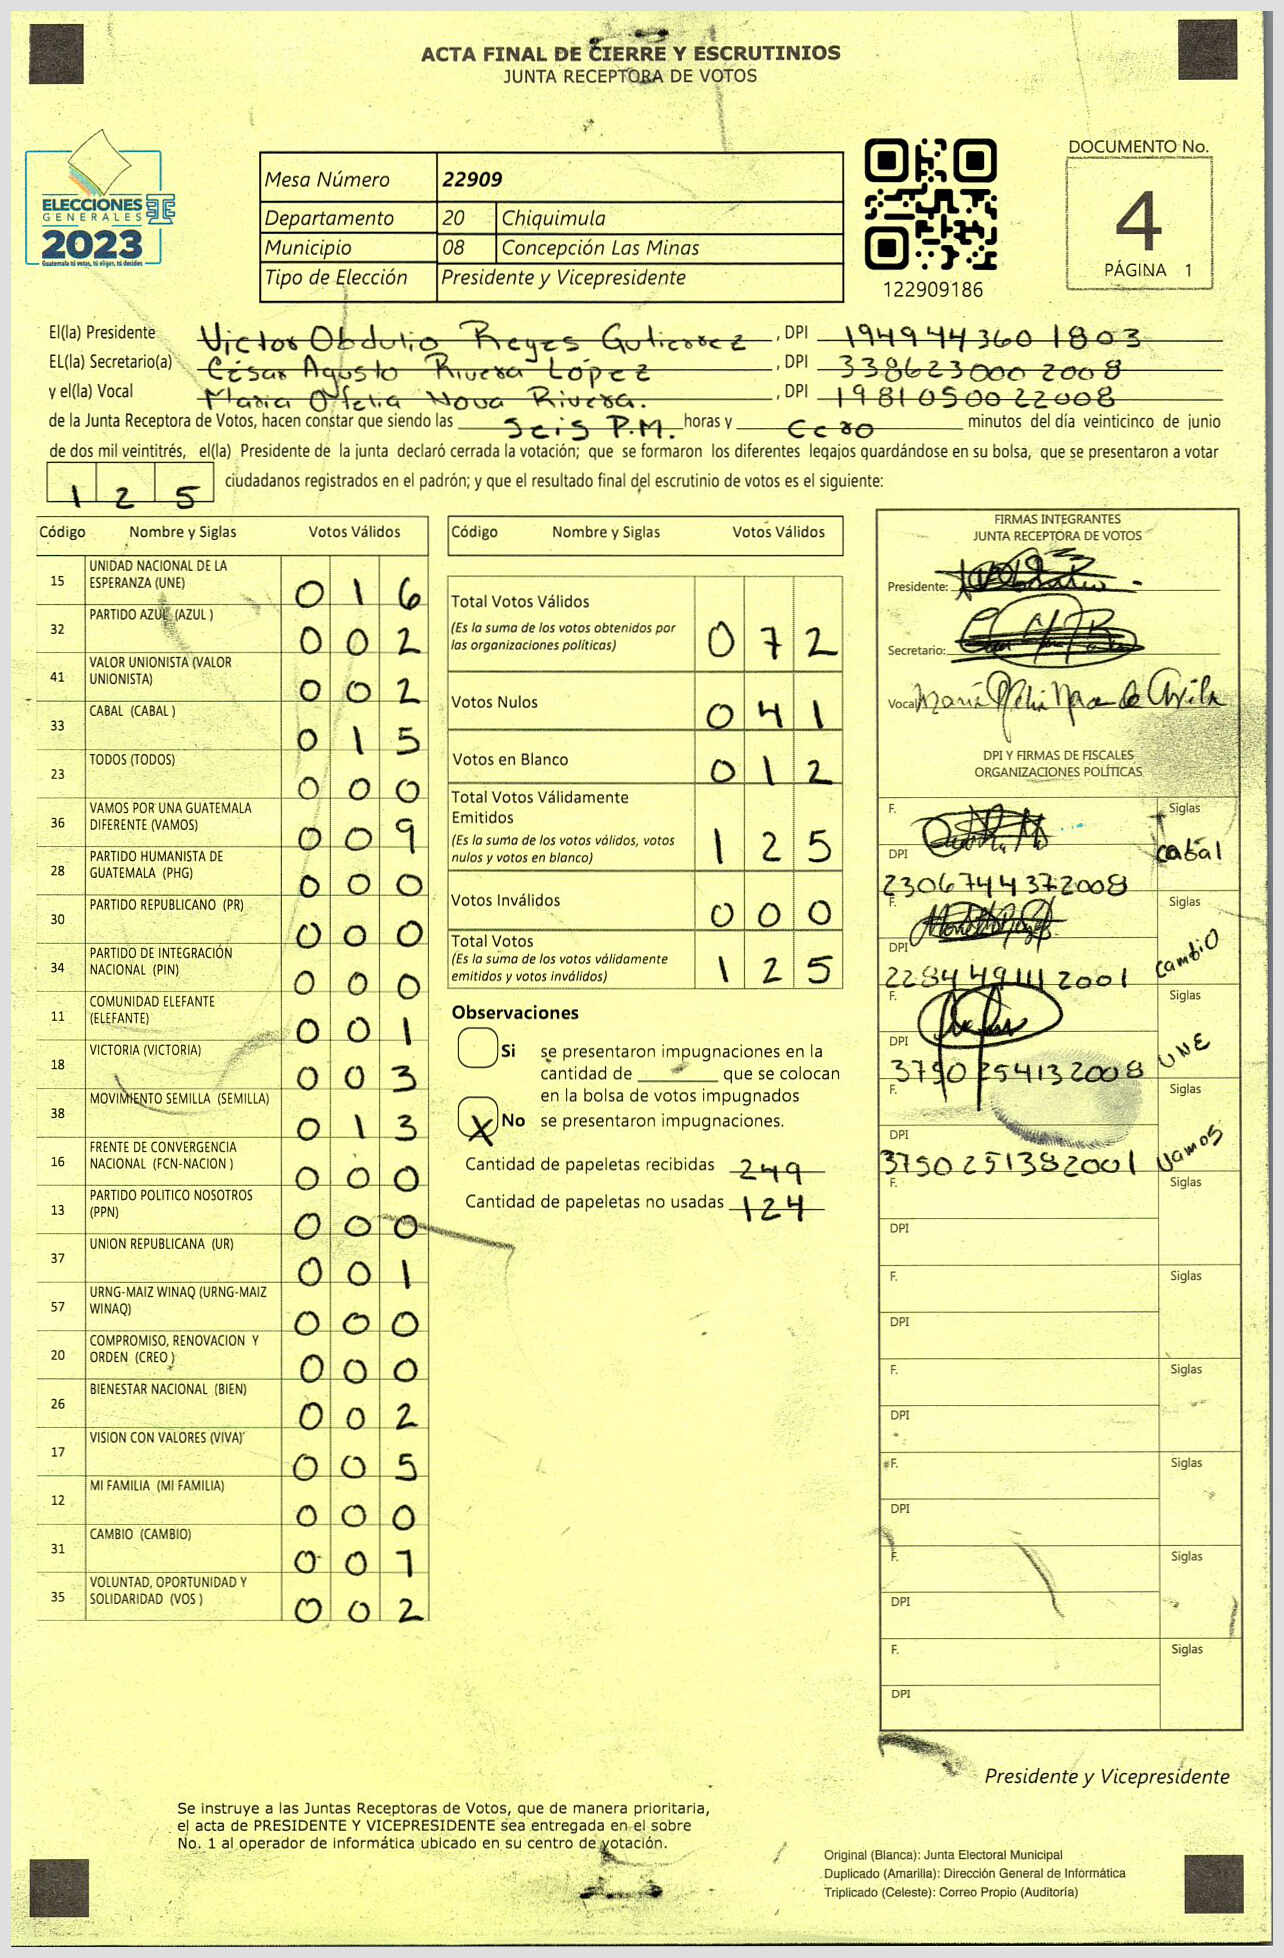 ACTA FINAL DE CIERRE Y ESCRUTINIOS
JUNTA RECEPTORA DE VOTOS
ELECCIONES
GENERALES
2023
Guatemala tú votas, tú eliges, tú decides
Mesa Número 22909
Departamento 20 Chiquimula
Municipio 08 Concepción Las Minas
Tipo de Elección Presidente y Vicepresidente
122909186
DOCUMENTO No.
4
PÁGINA 1
El(la) Presidente Victor Obdulio Reyes Gutierrez, DPI 1949443601803
EL(la) Secretario(a) César Agusto Rivera López, DPI 3386230002008
y el(la) Vocal Maria Ofelia Nova Rivera., DPI 1981050022008
de la Junta Receptora de Votos, hacen constar que siendo las Seis P.M. horas y Cero minutos del día veinticinco de junio
de dos mil veintitrés, el(la) Presidente de la junta declaró cerrada la votación; que se formaron los diferentes legajos quardándose en su bolsa, que se presentaron a votar
125 ciudadanos registrados en el padrón; y que el resultado final del escrutinio de votos es el siguiente:
Código Nombre y Siglas Votos Válidos
15 UNIDAD NACIONAL DE LA
ESPERANZA (UNE) 016
32 PARTIDO AZUL (AZUL ) 002
41 VALOR UNIONISTA (VALOR
UNIONISTA) 002
33 CABAL (CABAL ) 015
23 TODOS (TODOS) 000
36 VAMOS POR UNA GUATEMALA
DIFERENTE (VAMOS) 009
28 PARTIDO HUMANISTA DE
GUATEMALA (PHG) 000
30 PARTIDO REPUBLICANO (PR) 000
34 PARTIDO DE INTEGRACIÓN
NACIONAL (PIN) 000
11 COMUNIDAD ELEFANTE
(ELEFANTE) 001
18 VICTORIA (VICTORIA) 003
38 MOVIMIENTO SEMILLA (SEMILLA) 013
16 FRENTE DE CONVERGENCIA
NACIONAL (FCN-NACION ) 000
13 PARTIDO POLITICO NOSOTROS
(PPN) 000
37 UNION REPUBLICANA (UR) 001
57 URNG-MAIZ WINAQ (URNG-MAIZ
WINAQ) 000
20 COMPROMISO, RENOVACION Y
ORDEN (CREO ) 000
26 BIENESTAR NACIONAL (BIEN) 002
17 VISION CON VALORES (VIVA) 005
12 MI FAMILIA (MI FAMILIA) 000
31 CAMBIO (CAMBIO) 001
35 VOLUNTAD, OPORTUNIDAD Y
SOLIDARIDAD (VOS ) 002
Código Nombre y Siglas Votos Válidos
Total Votos Válidos
(Es la suma de los votos obtenidos por
las organizaciones políticas) 072
Votos Nulos 041
Votos en Blanco 012
Total Votos Válidamente
Emitidos
(Es la suma de los votos válidos, votos
nulos y votos en blanco) 125
Votos Inválidos 000
Total Votos
(Es la suma de los votos válidamente
emitidos y votos inválidos) 125
Observaciones
Si se presentaron impugnaciones en la
cantidad de ________ que se colocan
en la bolsa de votos impugnados
X No se presentaron impugnaciones.
Cantidad de papeletas recibidas 249
Cantidad de papeletas no usadas 124
FIRMAS INTEGRANTES
JUNTA RECEPTORA DE VOTOS
Presidente:
Secretario:
Vocal
DPI Y FIRMAS DE FISCALES
ORGANIZACIONES POLÍTICAS
F. Siglas
cabal
DPI
2306744372008
F. Siglas
cambio
DPI
2284491112001
F. Siglas
UNE
DPI
3750254132008
F. Siglas
Vamos
DPI
3750251382001
F. Siglas
DPI
F. Siglas
DPI
F. Siglas
DPI
F. Siglas
DPI
F. Siglas
DPI
F. Siglas
DPI
Presidente y Vicepresidente
Se instruye a las Juntas Receptoras de Votos, que de manera prioritaria,
el acta de PRESIDENTE Y VICEPRESIDENTE sea entregada en el sobre
No. 1 al operador de informática ubicado en su centro de votación.
Original (Blanca): Junta Electoral Municipal
Duplicado (Amarilla): Dirección General de Informática
Triplicado (Celeste): Correo Propio (Auditoría)